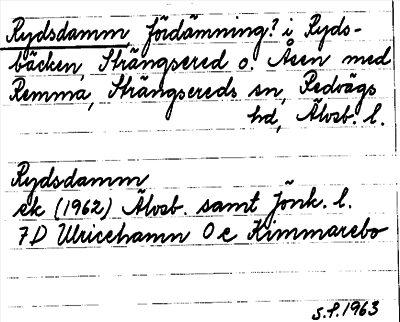 Rydsdamm, fördämning? i Ryds-
bäcken, Strängsered o. Åsen med
Remma, Strängsereds sn, Redvägs
hd, Älvsb. l.
Rydsdamm
ek (1962) Älvsb. samt Jönk. l.
7D Ulricehamn O e Kimmarebo
s.f. 1963